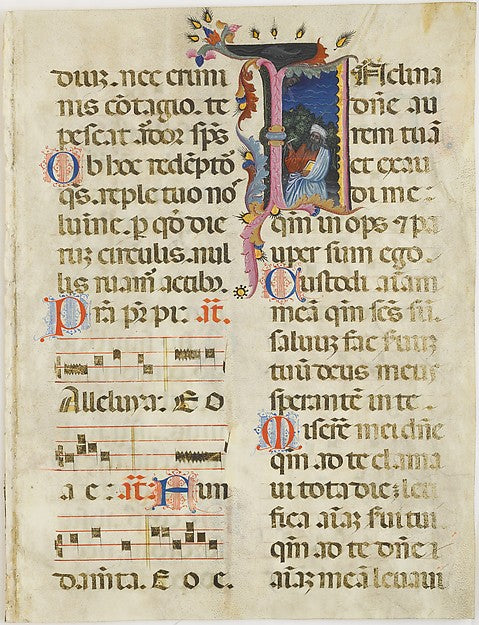 diuz. nec crimi
nis cōtagio. te
pescat ardor sp̄s
Ob hoc redēptō
q̄s. reple tuo no᷒
lumine. p̱ qd̄ die
ruz circulis. nul
lis ruam᷒ actibꝫ.
Prā pr̄ pi: añ.
Alleluya: E O
a e : añ: Aun
damta. E o c.
INclina
dñe au
rem tuā
et exau
di me :
qm̄ inops ⁊ pa
uper sum ego.
Custodi aīam
meā qm̄ scs̄ sū.
saluuz fac suuz
tuū deus meus
sperantē in te.
Miserē mei dñe
qm̄ ad te clama
ui tota die: leti
fica aīaz sui tui
qm̄ ad te dñe
aīaz meā leuaui